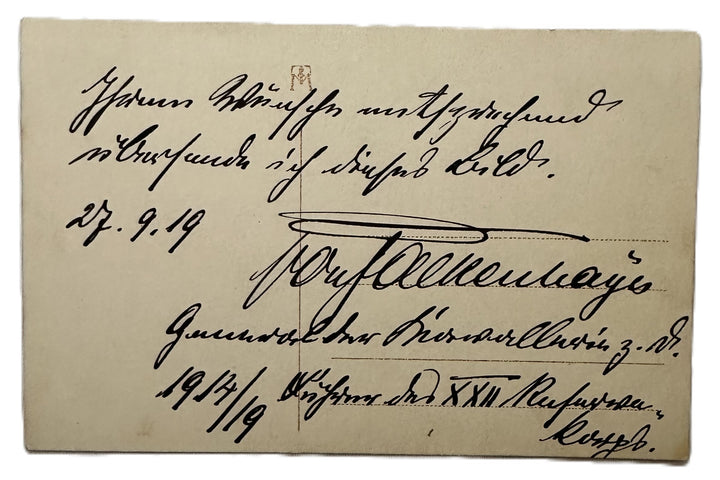 Ihrem Wunsche entsprechend
übersende ich dieses Bild.
27. 9. 19
von Falkenhayn
General der Kavallerie z. D.
1914/19 Führer des XXII Reserve-
Korps.